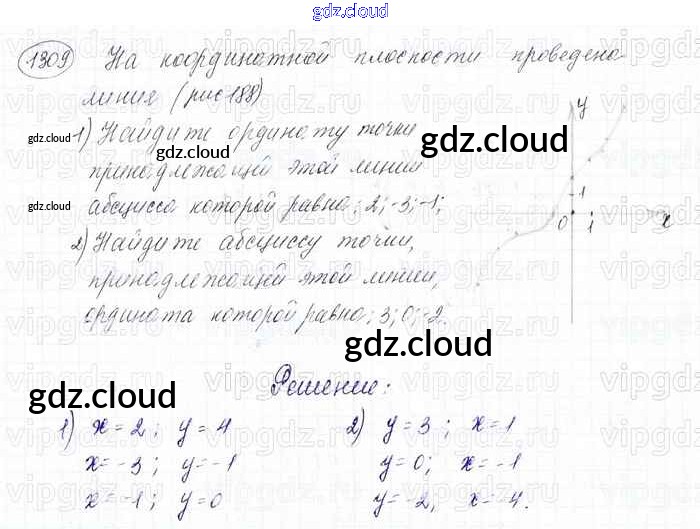 gdz.cloud
1309 На координатной плоскости проведена
линия (рис 188)
gdz.cloud 1) Найдите ординату точки gdz.cloud
gdz.cloud
принадлежащей этой линии
gdz.cloud абсцисса которой равна: 2; -3; -1;
2) Найдите абсциссу точки,
принадлежащей этой линии,
ордината которой равна: 3; 0; -2.
y
1
0 1 x
gdz.cloud
Решение:
gdz.cloud
1) x = 2; y = 4
x = -3; y = -1
x = -1; y = 0
2) y = 3; x = 1
y = 0; x = -1
y = -2, x = -4.
vipgdz.ru